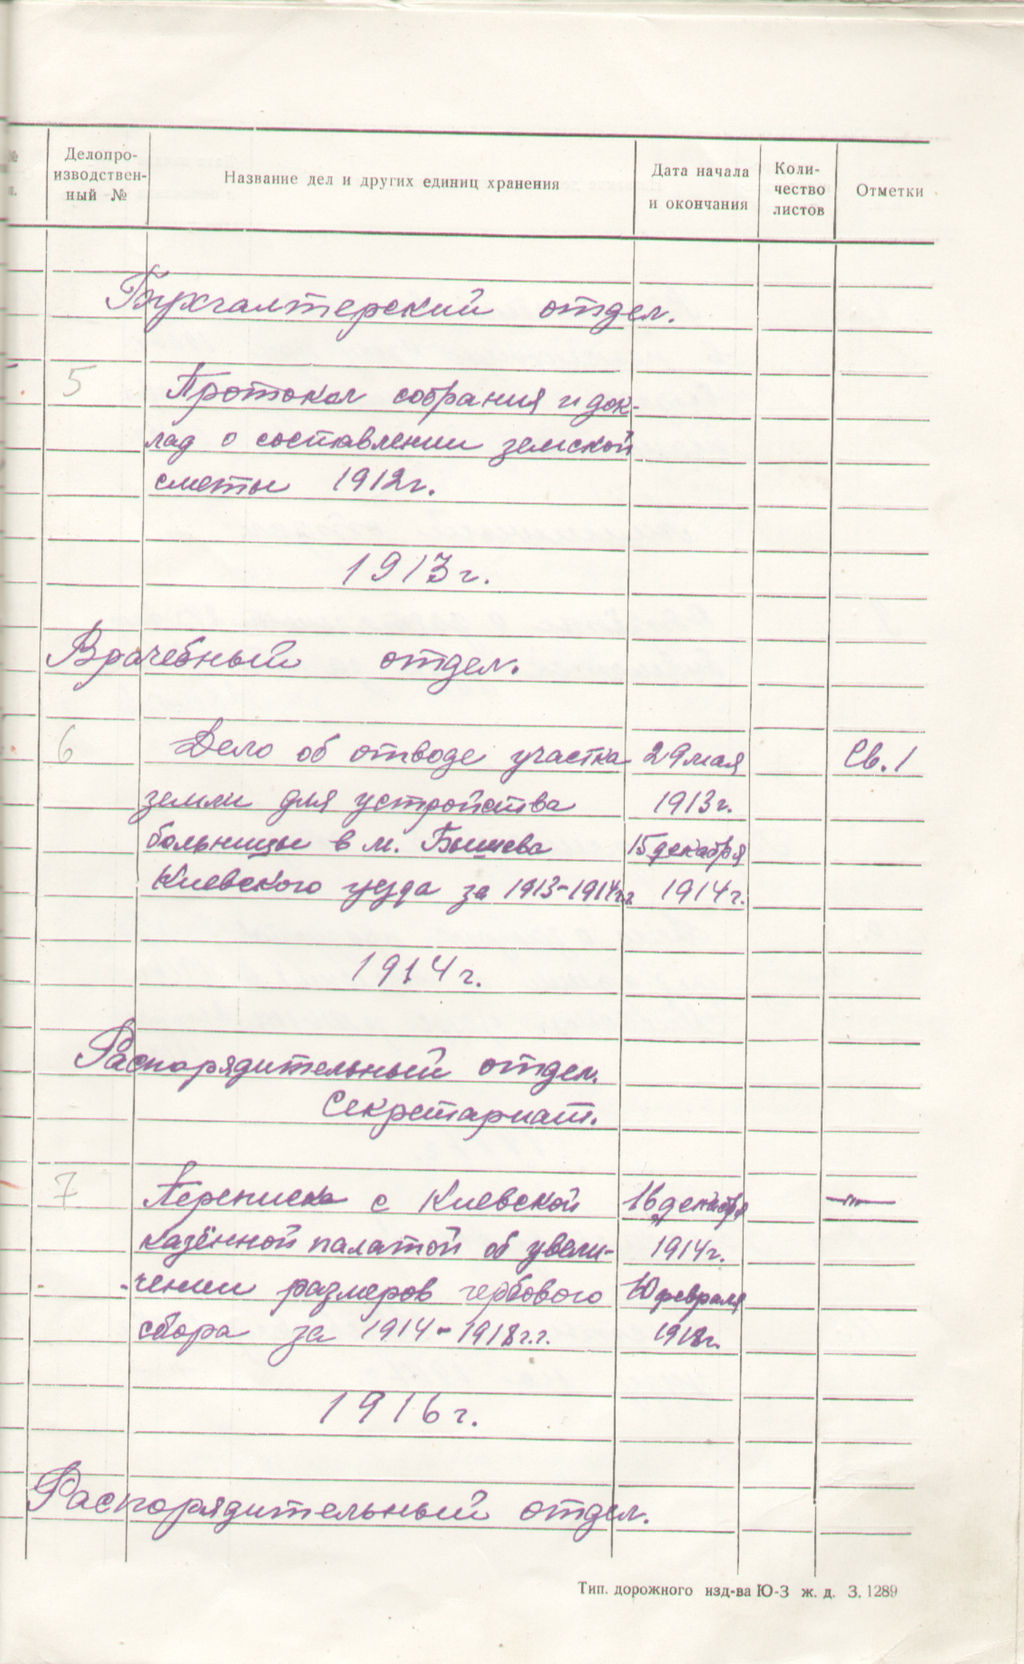 №
Делопро-
изводствен-
ный №
Название дел и других единиц хранения
Дата начала
и окончания
Коли-
чество
листов
Отметки
Бухгалтерский отдел.
5 Протокол собрания и док-
лад о составлении земской
сметы 1912г.
1913г.
Врачебный отдел.
6 Дело об отводе участка 29 мая Св. 1
земли для устройства 1913г.
больницы в м. Бышева 15 декабря
Киевского уезда за 1913-1914г.г. 1914г.
1914г.
Распорядительный отдел.
Секретариат.
7 Переписка с Киевской 16 декабря —"—
казённой палатой об увели- 1914г.
чении размеров гербового 10 февраля
сбора за 1914-1918г.г. 1918г.
1916г.
Распорядительный отдел.
Тип. дорожного изд-ва Ю-З ж. д. З. 1289